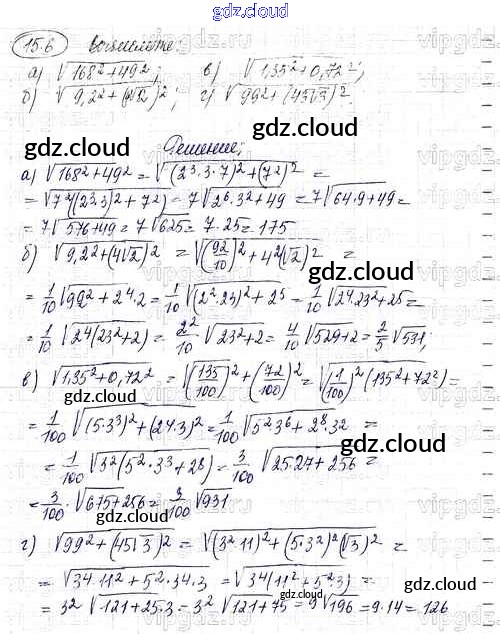 www.gdz.cloud
gdz.cloud
15.6 Вычислите:
а) √168²+49²; в) √1,35²+0,72²;
б) √9,2²+(4√2)²; г) √99²+(45√3)².
gdz.cloud
gdz.cloud
Решение:
а) √168²+49² = √(2³·3·7)²+(7²)² =
= √7²((2³·3)²+7²) = 7√2⁶·3²+49 = 7√64·9+49 =
= 7√576+49 = 7√625 = 7·25 = 175
gdz.cloud
б) √9,2²+(4√2)² = √(92/10)²+4²(√2)² =
gdz.cloud
= 1/10 √92²+2⁴·2 = 1/10 √(2²·23)²+2⁵ = 1/10 √2⁴·23²+2⁵ =
= 1/10 √2⁴(23²+2) = 2²/10 √23²+2 = 4/10 √529+2 = 2/5 √531;
в) √1,35²+0,72² = √(135/100)²+(72/100)² = √(1/100)²(135²+72²) =
= 1/100 √(5·3³)²+(2⁴·3)² = 1/100 √5²3⁶+2⁸·3² =
gdz.cloud
= 1/100 √3²(5²·3³+2⁸) = 3/100 √25·27+256 =
= 3/100 · √675+256 = 3/100 √931
gdz.cloud
г) √99²+(45√3)² = √(3²·11)²+(5·3²)²(√3)² =
= √3⁴·11²+5²·3⁴·3 = √3⁴(11²+5²·3) =
= 3² √121+25·3 = 3² √121+75 = 9√196 = 9·14 = 126
gdz.cloud
gdz.cloud